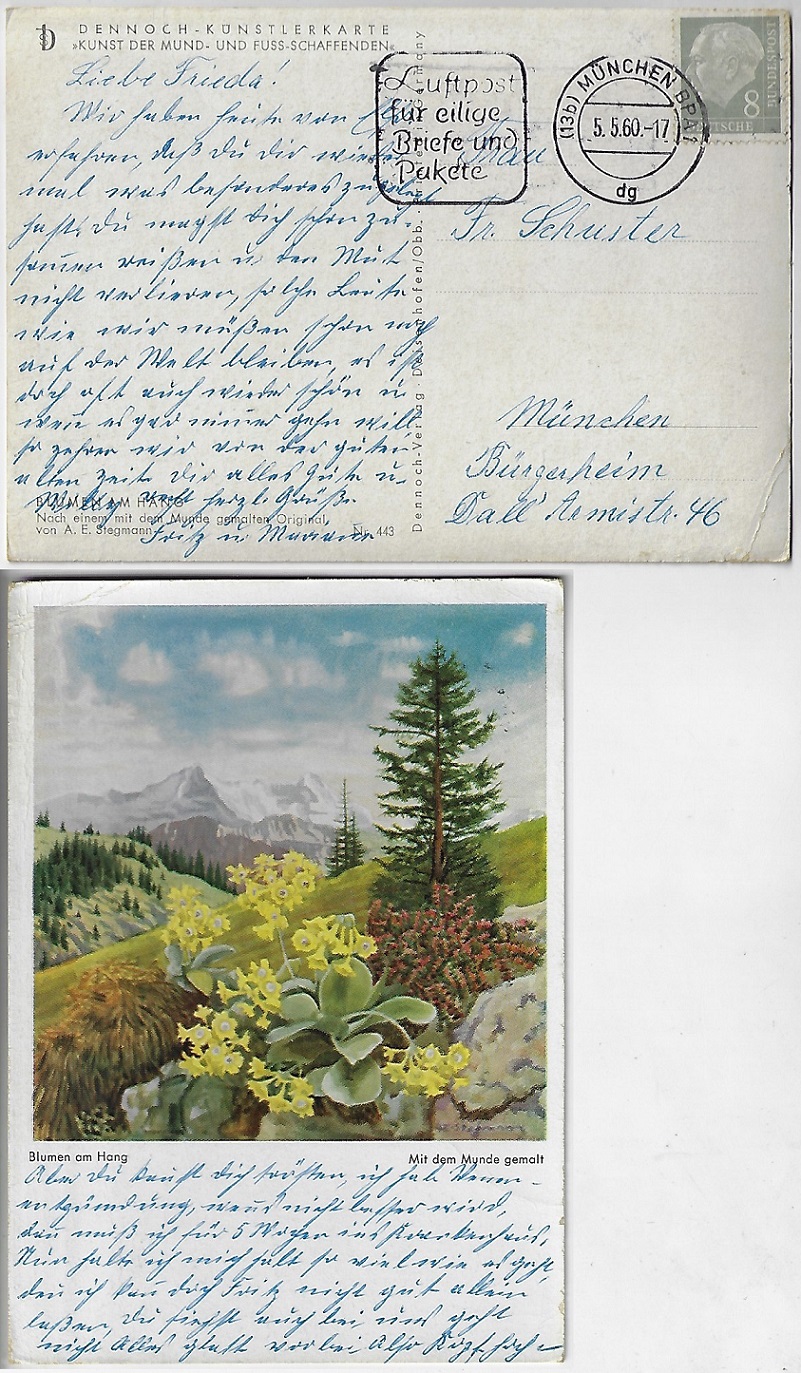 DENNOCH-KÜNSTLERKARTE
»KUNST DER MUND- UND FUSS-SCHAFFENDEN«
Liebe Frieda!
Wir haben heute von
erfahren, daß du dir wieder
mal was besonderes zugelegt
hast, du magst dich schon zu-
samen reißen u. den Mut
nicht verlieren, solche Leute
wie wir müßen schon noch
auf der Welt bleiben, es ist
doch oft auch wieder schön u.
wen es gar nimer gehn will,
so zehren wir von der guten
alten Zeit. Dir alles Gute u.
herzl. Grüße
Fritz u.
BLUMEN AM HANG
Nach einem mit dem Munde gemalten Original
von A. E. Stegmann
Nr. 443
Dennoch-Verlag · Deisenhofen/Obb. · Germany
Luftpost
für eilige
Briefe und
Pakete
(13b) MÜNCHEN BPA 1
5.5.60.-17
dg
8
DEUTSCHE BUNDESPOST
Frau
Fr. Schuster
München
Bürgerheim
Dall' Armistr. 46
Blumen am Hang
Mit dem Munde gemalt
Aber du kanst dich trösten, ich hab Venen-
entzündung, wens nicht besser wird,
dan muß ich für 5 Wochen ins Krankenhaus,
Nun halte ich mich halt so viel wie es geht,
den ich kan doch Fritz nicht gut allein
laßen, du siehst auch bei uns geht
nicht Alles glatt vorbei Also Kopf hoch